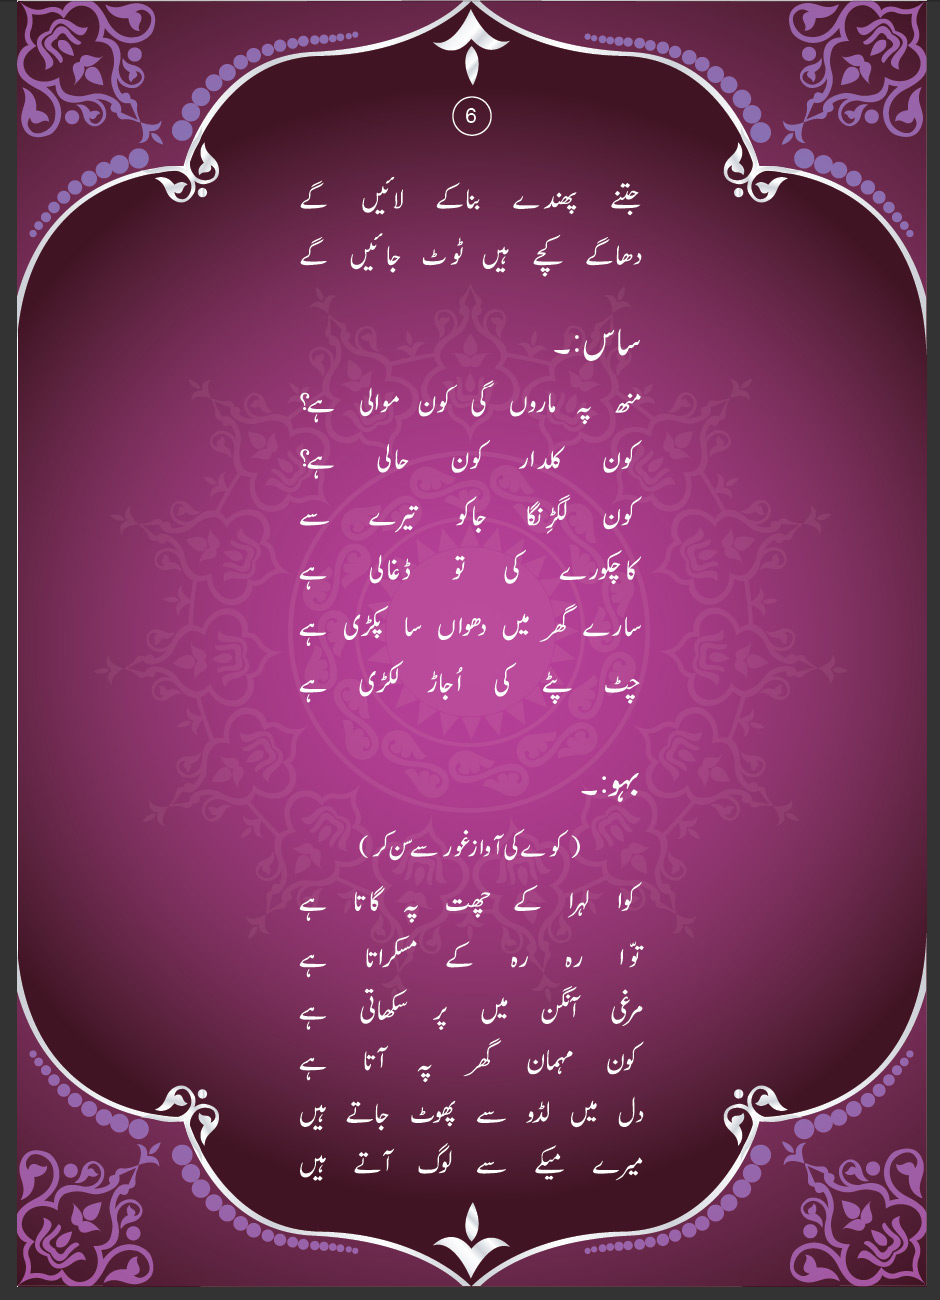 6
جتنے پھندے بناکے لائیں گے
دھاگے کچے ہیں ٹوٹ جائیں گے
ساس:۔
منھ پہ ماروں گی کون موالی ہے؟
کون کلدار کون حالی ہے؟
کون لگڑِنگا جاکو تیرے سے
کاچکورے کی تو ڈغالی ہے
سارے گھر میں دھواں سا پکڑی ہے
چٹ پٹے کی اُجاڑ لکڑی ہے
بہو:۔
( کوے کی آواز غور سے سن کر )
کوا لہرا کے چھت پہ گاتا ہے
توّا رہ رہ کے مسکراتا ہے
مرغی آنگن میں پر سکھاتی ہے
کون مہمان گھر پہ آتا ہے
دل میں لڈو سے پھوٹ جاتے ہیں
میرے میکے سے لوگ آتے ہیں